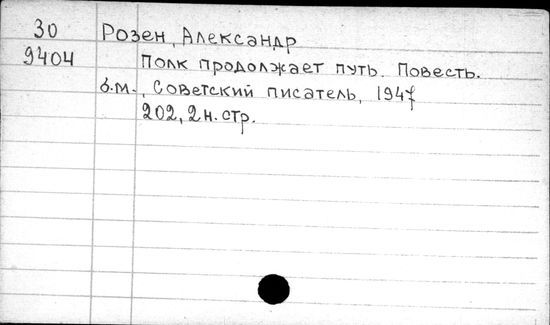 30 Розен, Александр
9404 Полк продолжает путь. Повесть.
б.м., Советский писатель, 1947
202, 2 н. стр.